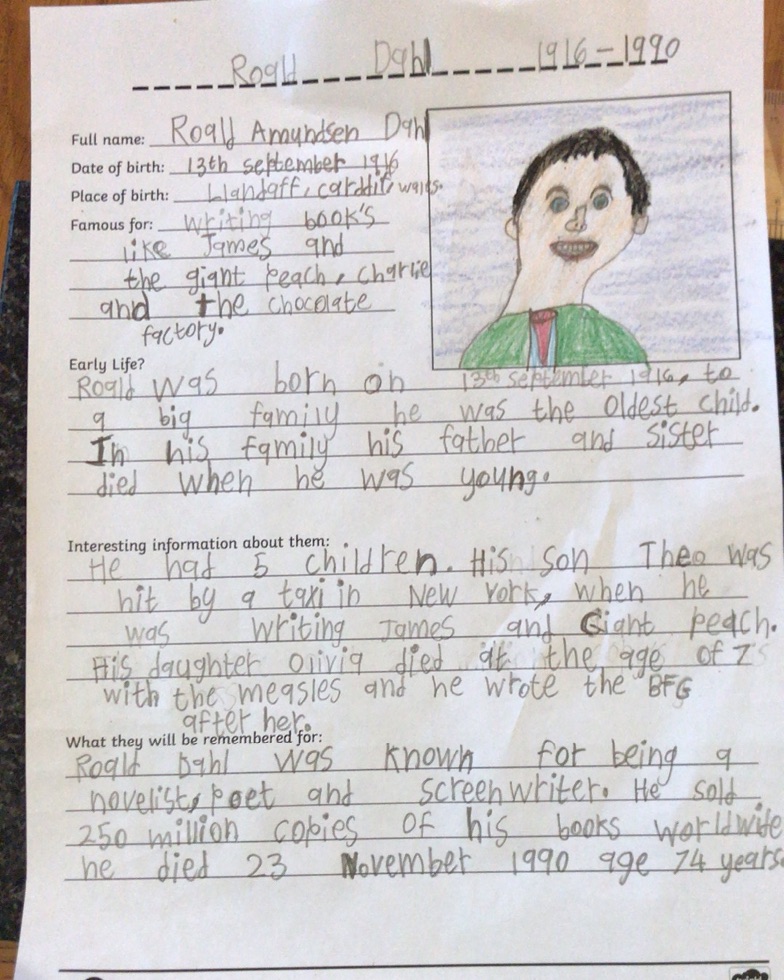 Roald Dahl 1916-1990
Full name: Roald Amundsen Dahl
Date of birth: 13th september 1916
Place of birth: Llandaff, carddif, wales.
Famous for: writing book's
like James and
the giant peach, charlie
and the chocolate
factory.
Early Life?
Roald was born on 13th september 1916, to
a big family he was the oldest child.
In his family his father and sister
died when he was young.
Interesting information about them:
He had 5 children. His son Theo was
hit by a taxi in New York, when he
was writing James and Giant peach.
His daughter Olivia died at the age of 7
with the measles and he wrote the BFG
after her.
What they will be remembered for:
Roald Dahl was known for being a
novelist, poet and screenwriter. He sold
250 million copies of his books worldwide
he died 23 November 1990 age 74 years